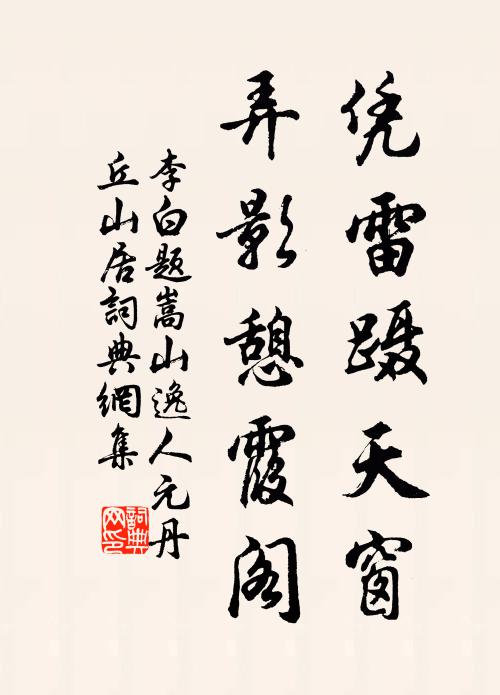 凭雷蹑天窗
弄影憩霞阁
李白题嵩山逸人元丹
丘山居詞典網集
詞典
网印